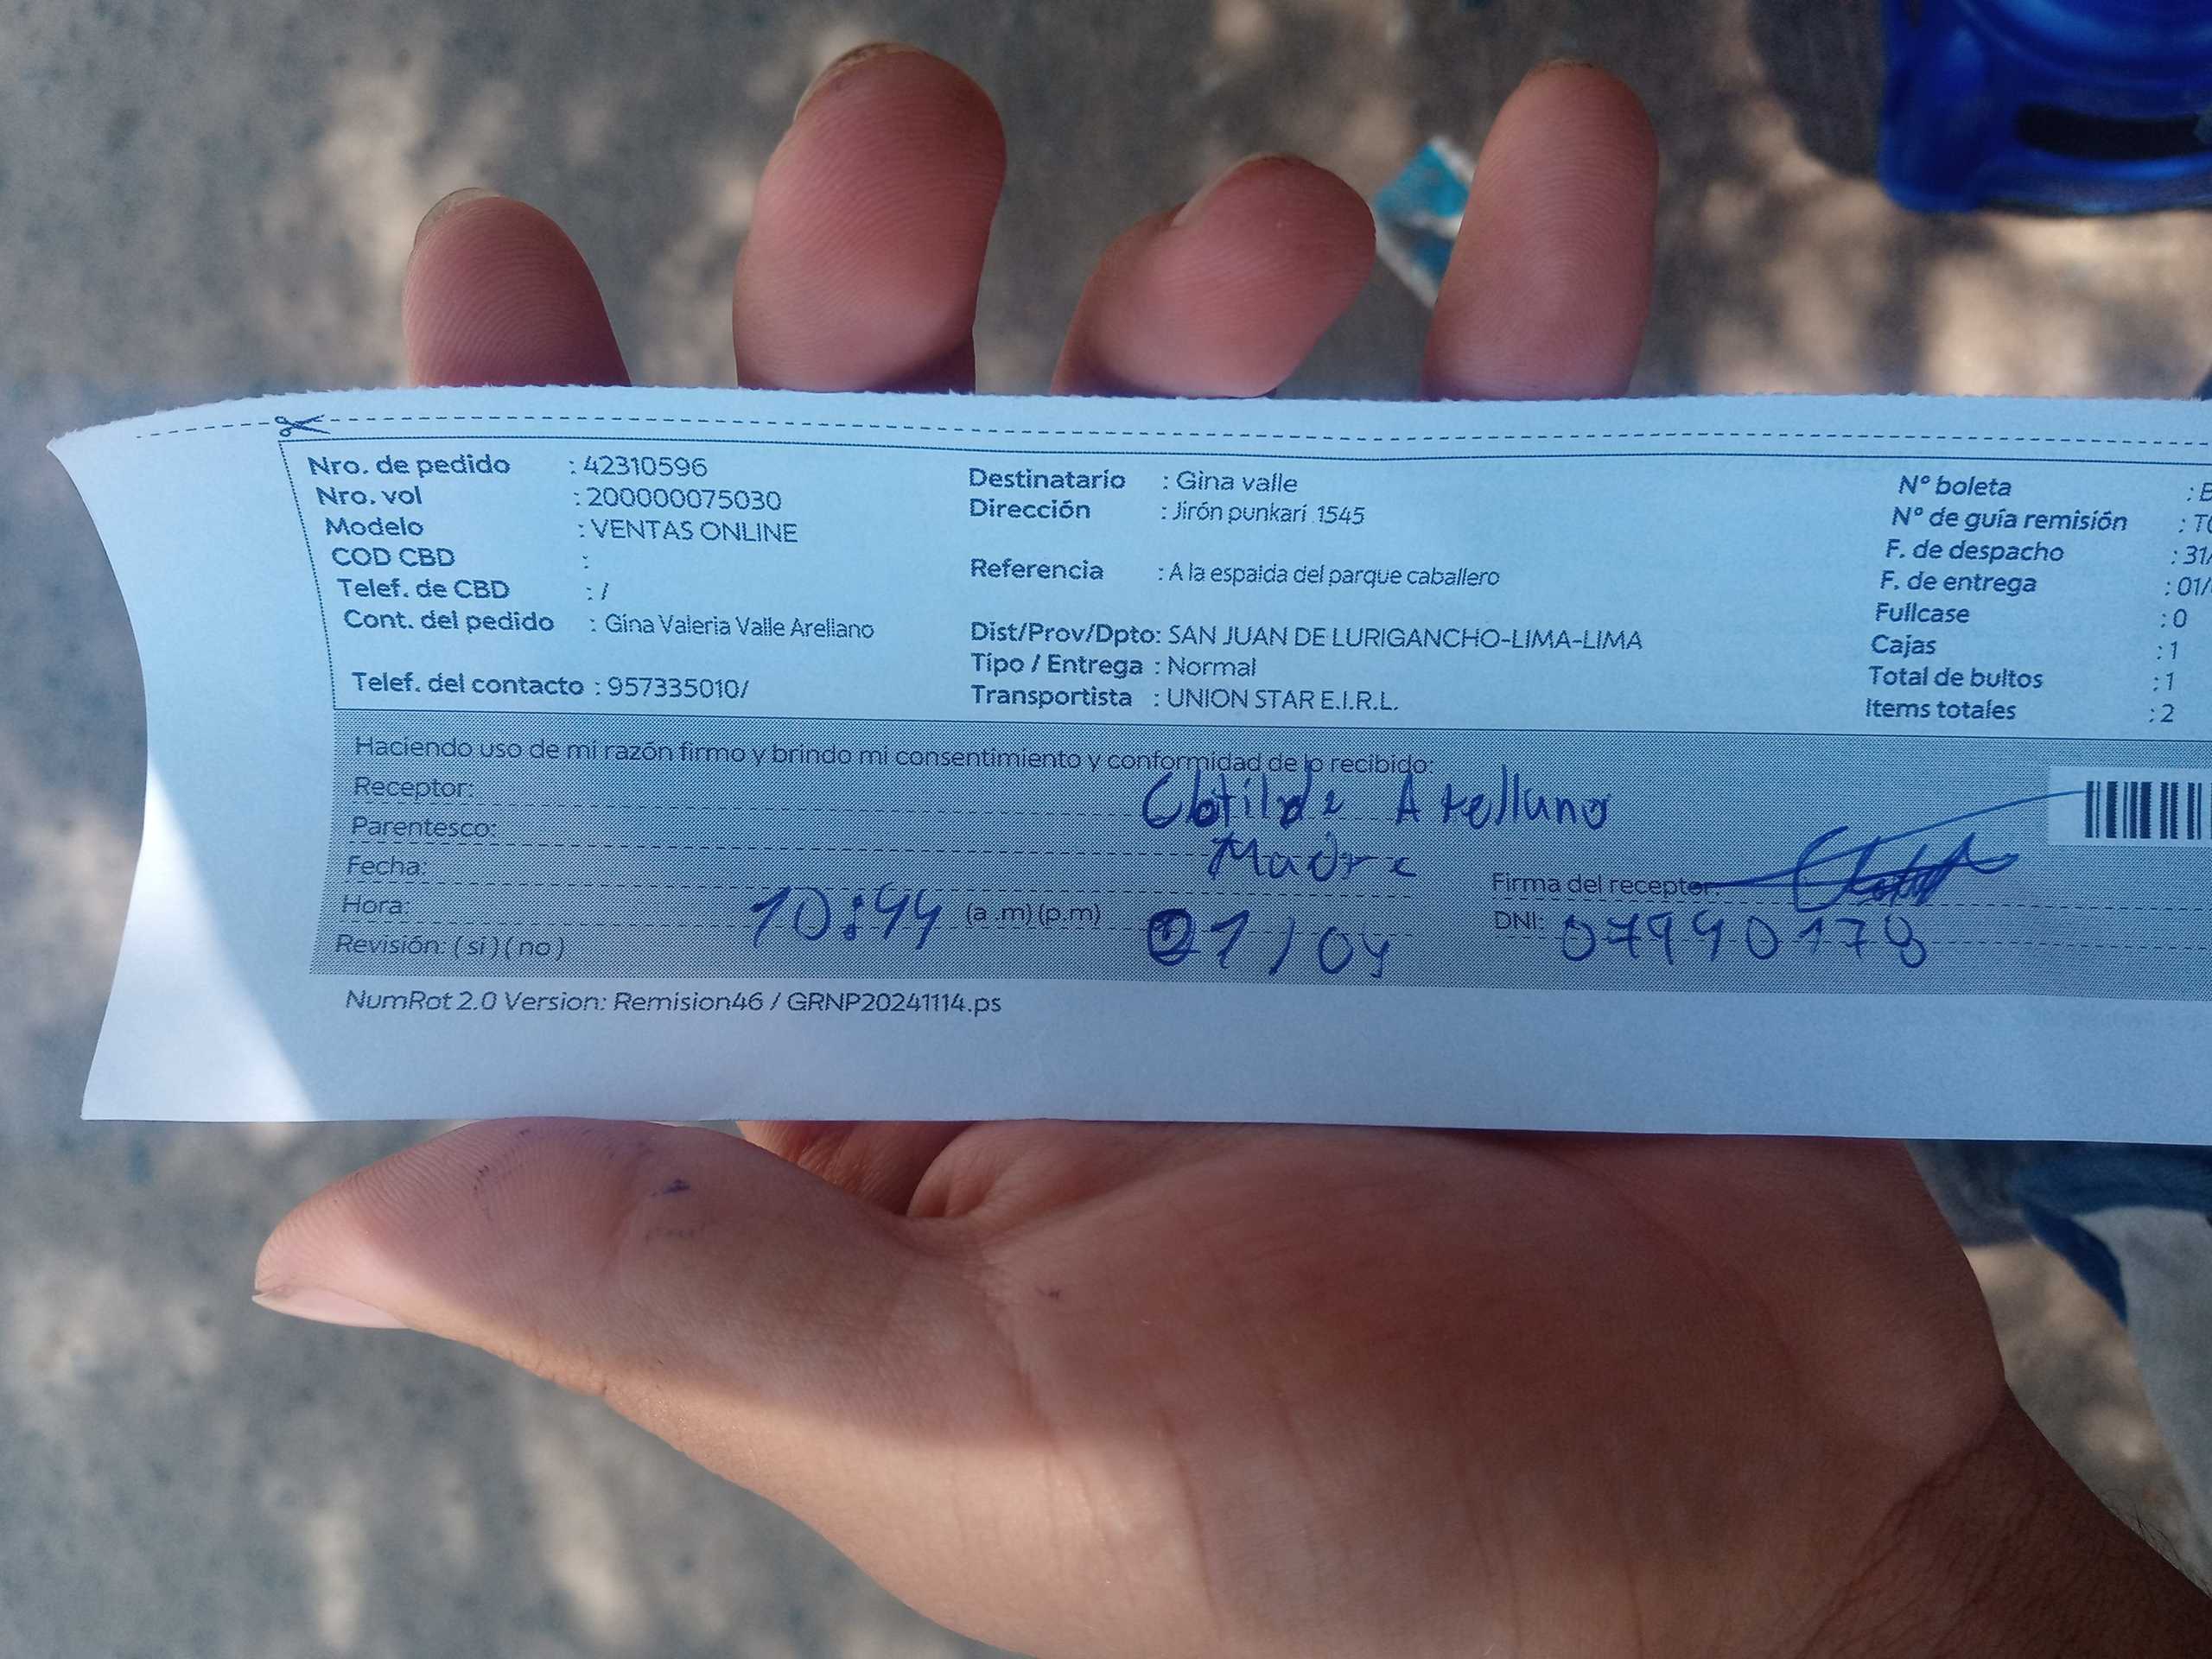 Nro. de pedido : 42310596
Nro. vol : 200000075030
Modelo : VENTAS ONLINE
COD CBD :
Telef. de CBD : /
Cont. del pedido : Gina Valeria Valle Arellano
Telef. del contacto : 957335010/
Destinatario : Gina valle
Dirección : Jirón punkari 1545
Referencia : A la espalda del parque caballero
Dist/Prov/Dpto: SAN JUAN DE LURIGANCHO-LIMA-LIMA
Tipo / Entrega : Normal
Transportista : UNION STAR E.I.R.L.
N° boleta : B
N° de guía remisión : T0
F. de despacho : 31/
F. de entrega : 01/
Fullcase : 0
Cajas : 1
Total de bultos : 1
Items totales : 2
Haciendo uso de mi razón firmo y brindo mi consentimiento y conformidad de lo recibido:
Receptor: Clotilde Arellano
Parentesco: Madre
Fecha: 01/04
Hora: 10:44 (a.m) (p.m)
Revisión: ( si ) ( no )
Firma del receptor:
DNI: 07990178
NumRot 2.0 Version: Remision46 / GRNP20241114.ps